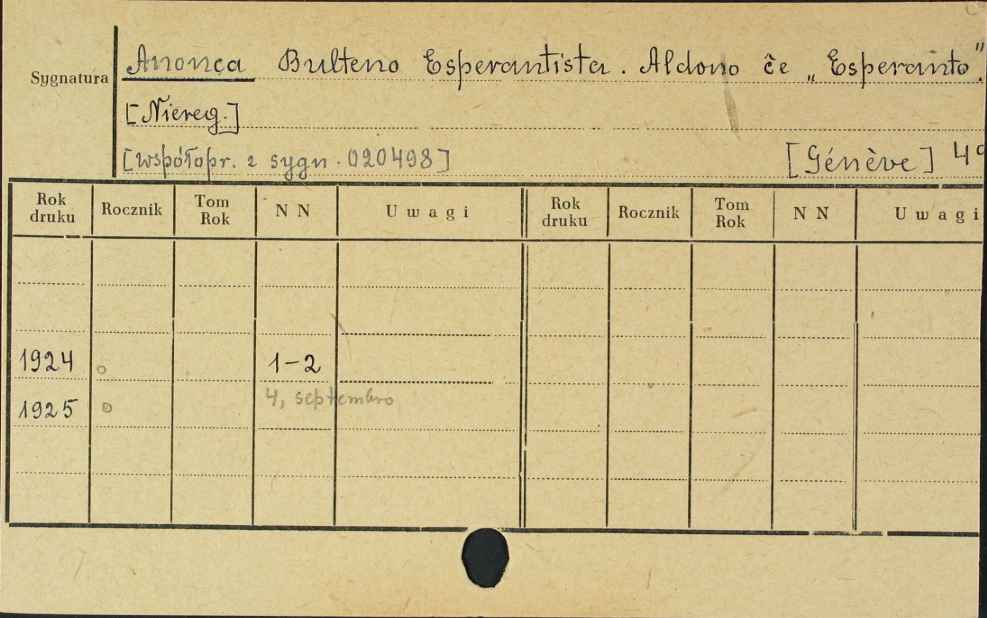 Sygnatura Anonca Bulteno Esperantista. Aldono ĉe „Esperanto".
[Niereg.]
[współopr. z sygn. 020498] [Génève] 4°
Rok druku Rocznik Tom Rok N N Uwagi Rok druku Rocznik Tom Rok N N Uwagi
1924 o 1-2
1925 o 4, septembro